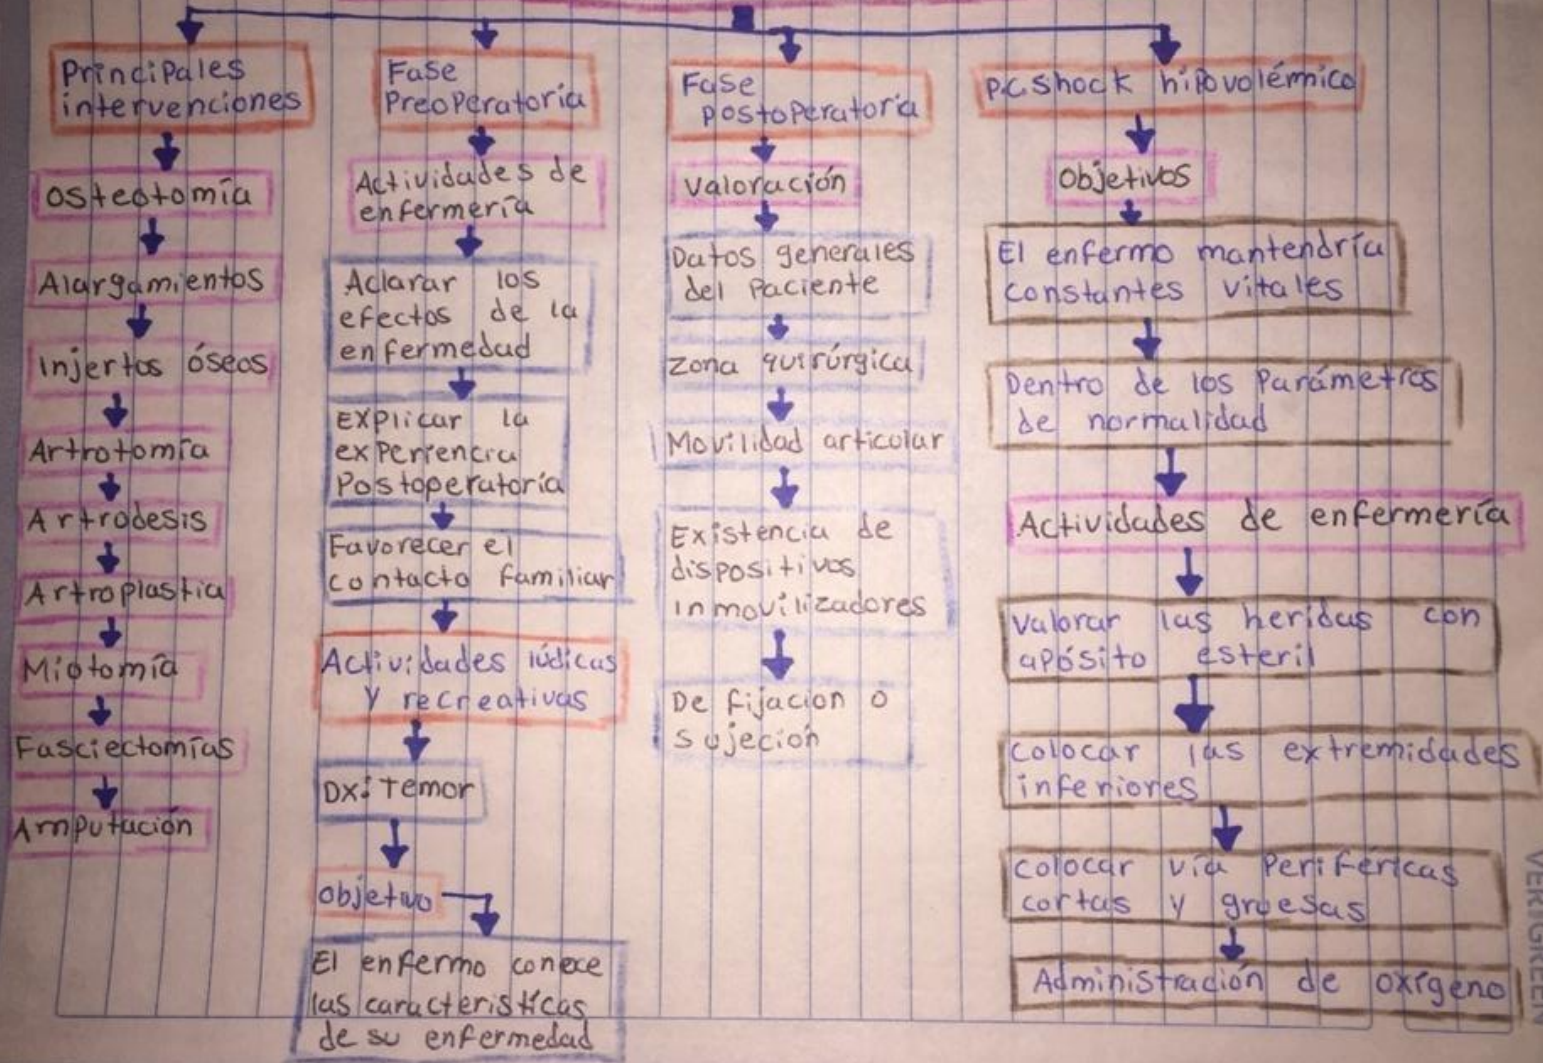 Principales
intervenciones
Osteotomía
Alargamientos
Injertos óseos
Artrotomía
Artrodesis
Artroplastia
Miotomía
Fasciectomías
Amputación
Fase
Preoperatoria
Actividades de
enfermería
Aclarar los
efectos de la
enfermedad
Explicar la
experiencia
Postoperatoria
Favorecer el
contacto familiar
Actividades lúdicas
y recreativas
DX: Temor
Objetivo
El enfermo conoce
las características
de su enfermedad
Fase
postoperatoria
Valoración
Datos generales
del paciente
Zona quirúrgica
Movilidad articular
Existencia de
dispositivos
inmovilizadores
De fijacion o
sujeción
PC shock hipovolémico
Objetivos
El enfermo mantendría
constantes vitales
Dentro de los Parámetros
de normalidad
Actividades de enfermería
Valorar las heridas con
apósito esteril
Colocar las extremidades
inferiores
Colocar vía Periféricas
cortas y gruesas
Administración de oxígeno
VERIGREEN